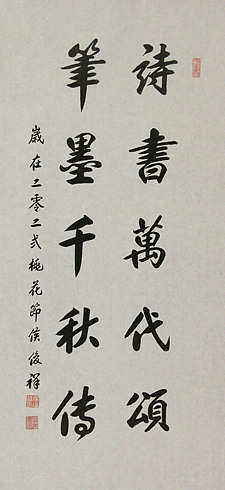 詩書萬代頌
筆墨千秋傳
歲在二零二弍桃花節侯俊祥